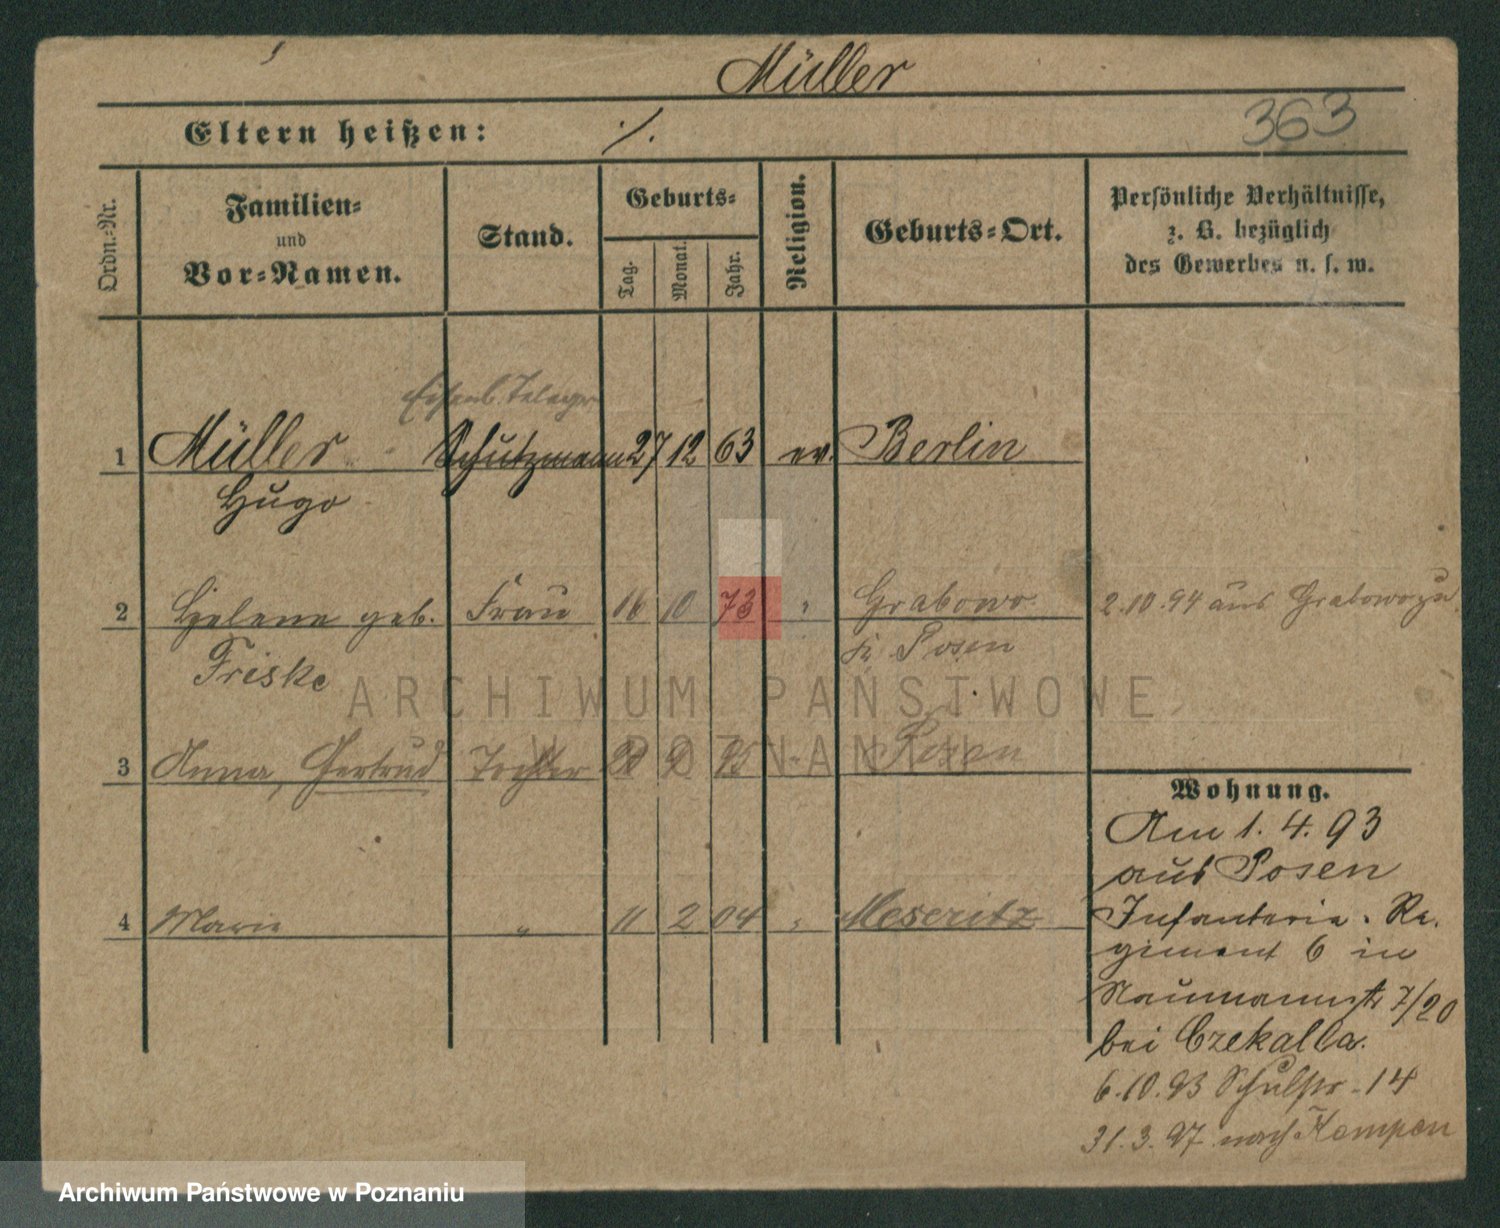 Müller
363
Eltern heißen: ./.
Ordn.-Nr.
Familien- und Vor-Namen.
Stand.
Geburts-
Tag.
Monat.
Jahr.
Religion.
Geburts-Ort.
Persönliche Verhältnisse,
z. B. bezüglich
des Gewerbes u. s. w.
Eisenb. Telegr.
1 Müller Schutzmann 27 12 63 ev. Berlin
Hugo
2 Helene geb. Frau 16 10 73 " Grabowo 2.10.94 aus Grabowo zu
Friske Posen
3 Anna, Gertrud Tochter Posen
Wohnung.
Am 1. 4. 93
aus Posen
4 Marie " 11 2 04 " Meseritz
Infanterie-Re-
giment 6 in
Naumannstr 7/20
bei Czekalla.
6.10.93 Schulstr. 14
31.3.97 nach Kempen
ARCHIWUM PAŃSTWOWE
W POZNANIU
Archiwum Państwowe w Poznaniu